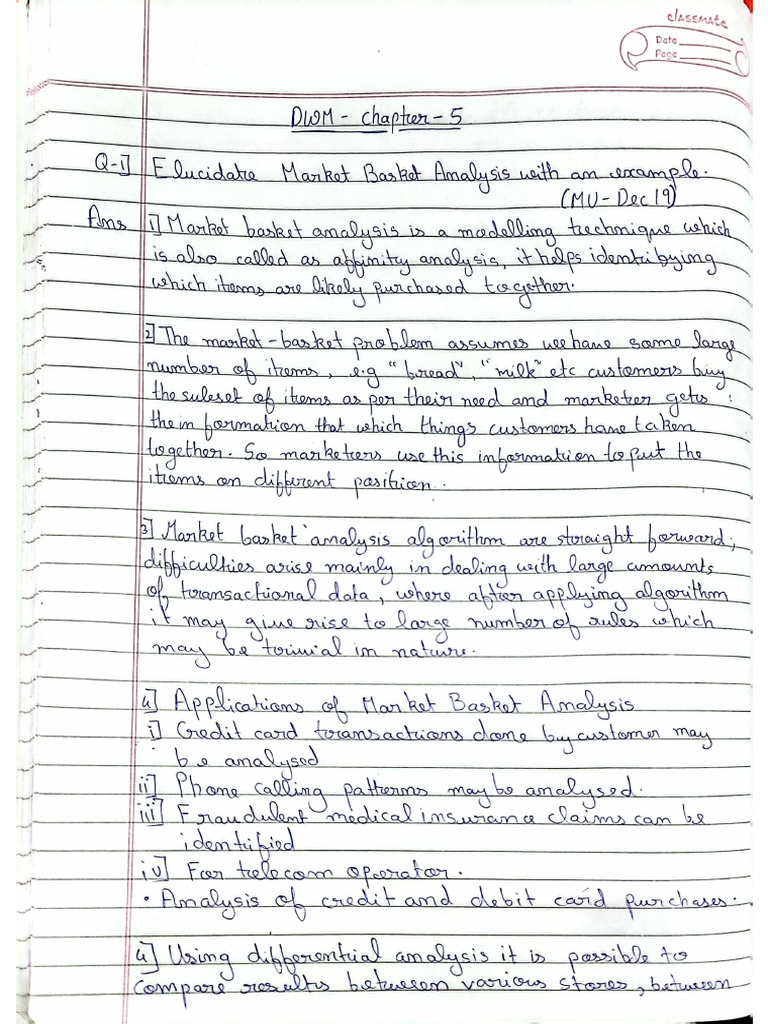 classmate
Date
Page
DWM - Chapter - 5
Q-1] Elucidate Market Basket Analysis with an example.
(MU - Dec 19)
Ans 1] Market basket analysis is a modelling technique which
is also called as affinity analysis, it helps identibying
which items are likely purchased together.
2] The market-basket problem assumes we have some large
number of items, e.g "bread", "milk" etc customers buy
the subset of items as per their need and marketer gets
the information that which things customers have taken
together. So marketers use this information to put the
items on different position.
3] Market basket analysis algorithm are straight forward;
difficulties arise mainly in dealing with large amounts
of transactional data, where after applying algorithm
it may give rise to large number of rules which
may be trivial in nature.
4] Applications of Market Basket Analysis
i] Credit card transactions done by customer may
be analysed
ii] Phone calling patterns may be analysed.
iii] Fraudulent medical insurance claims can be
identified
iv] For telecom operator.
• Analysis of credit and debit card purchases.
4] Using differential analysis it is possible to
compare results between various stores, between